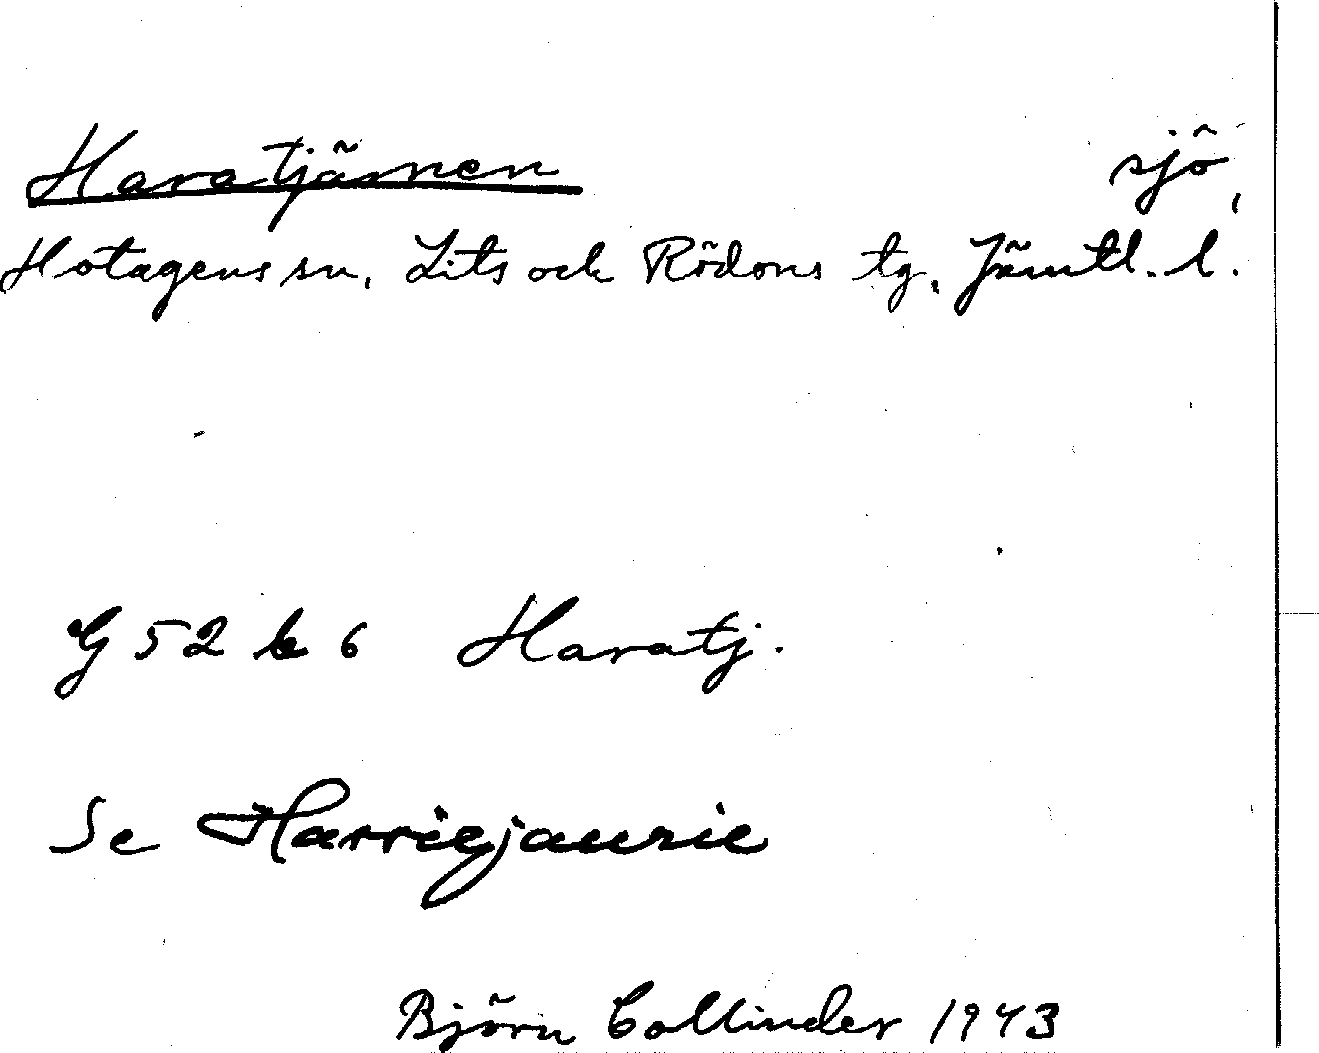 Haratjärnen sjö
Hotagens sn, Lits och Rödöns tg, Jämtl. l.
G 52 b 6 Haratj.
Se Harriejaurie
Björn Collinder 1943